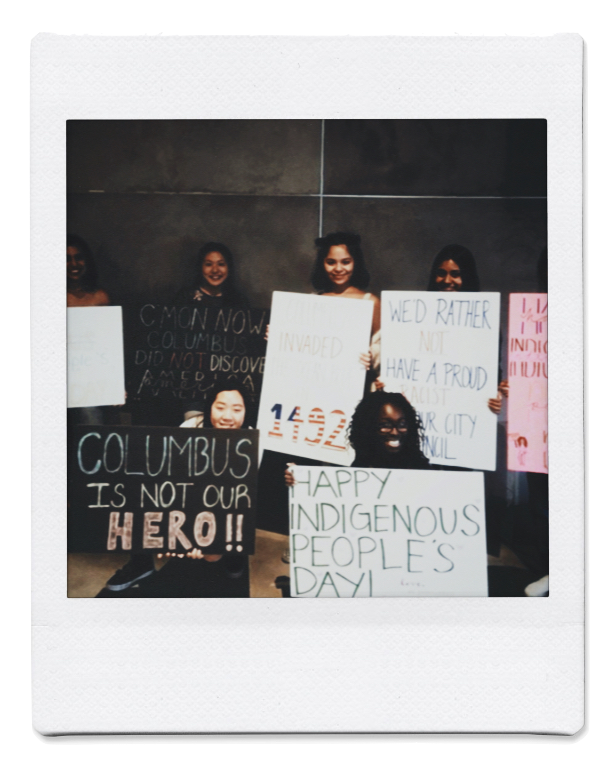 C'MON NOW
COLUMBUS
DID NOT DISCOVER
AMERICA
INVADED
1492
WE'D RATHER
NOT
HAVE A PROUD
RACIST
CITY
INDIG
COLUMBUS
IS NOT OUR
HERO!!
HAPPY
INDIGENOUS
PEOPLE'S
DAY!
Love,